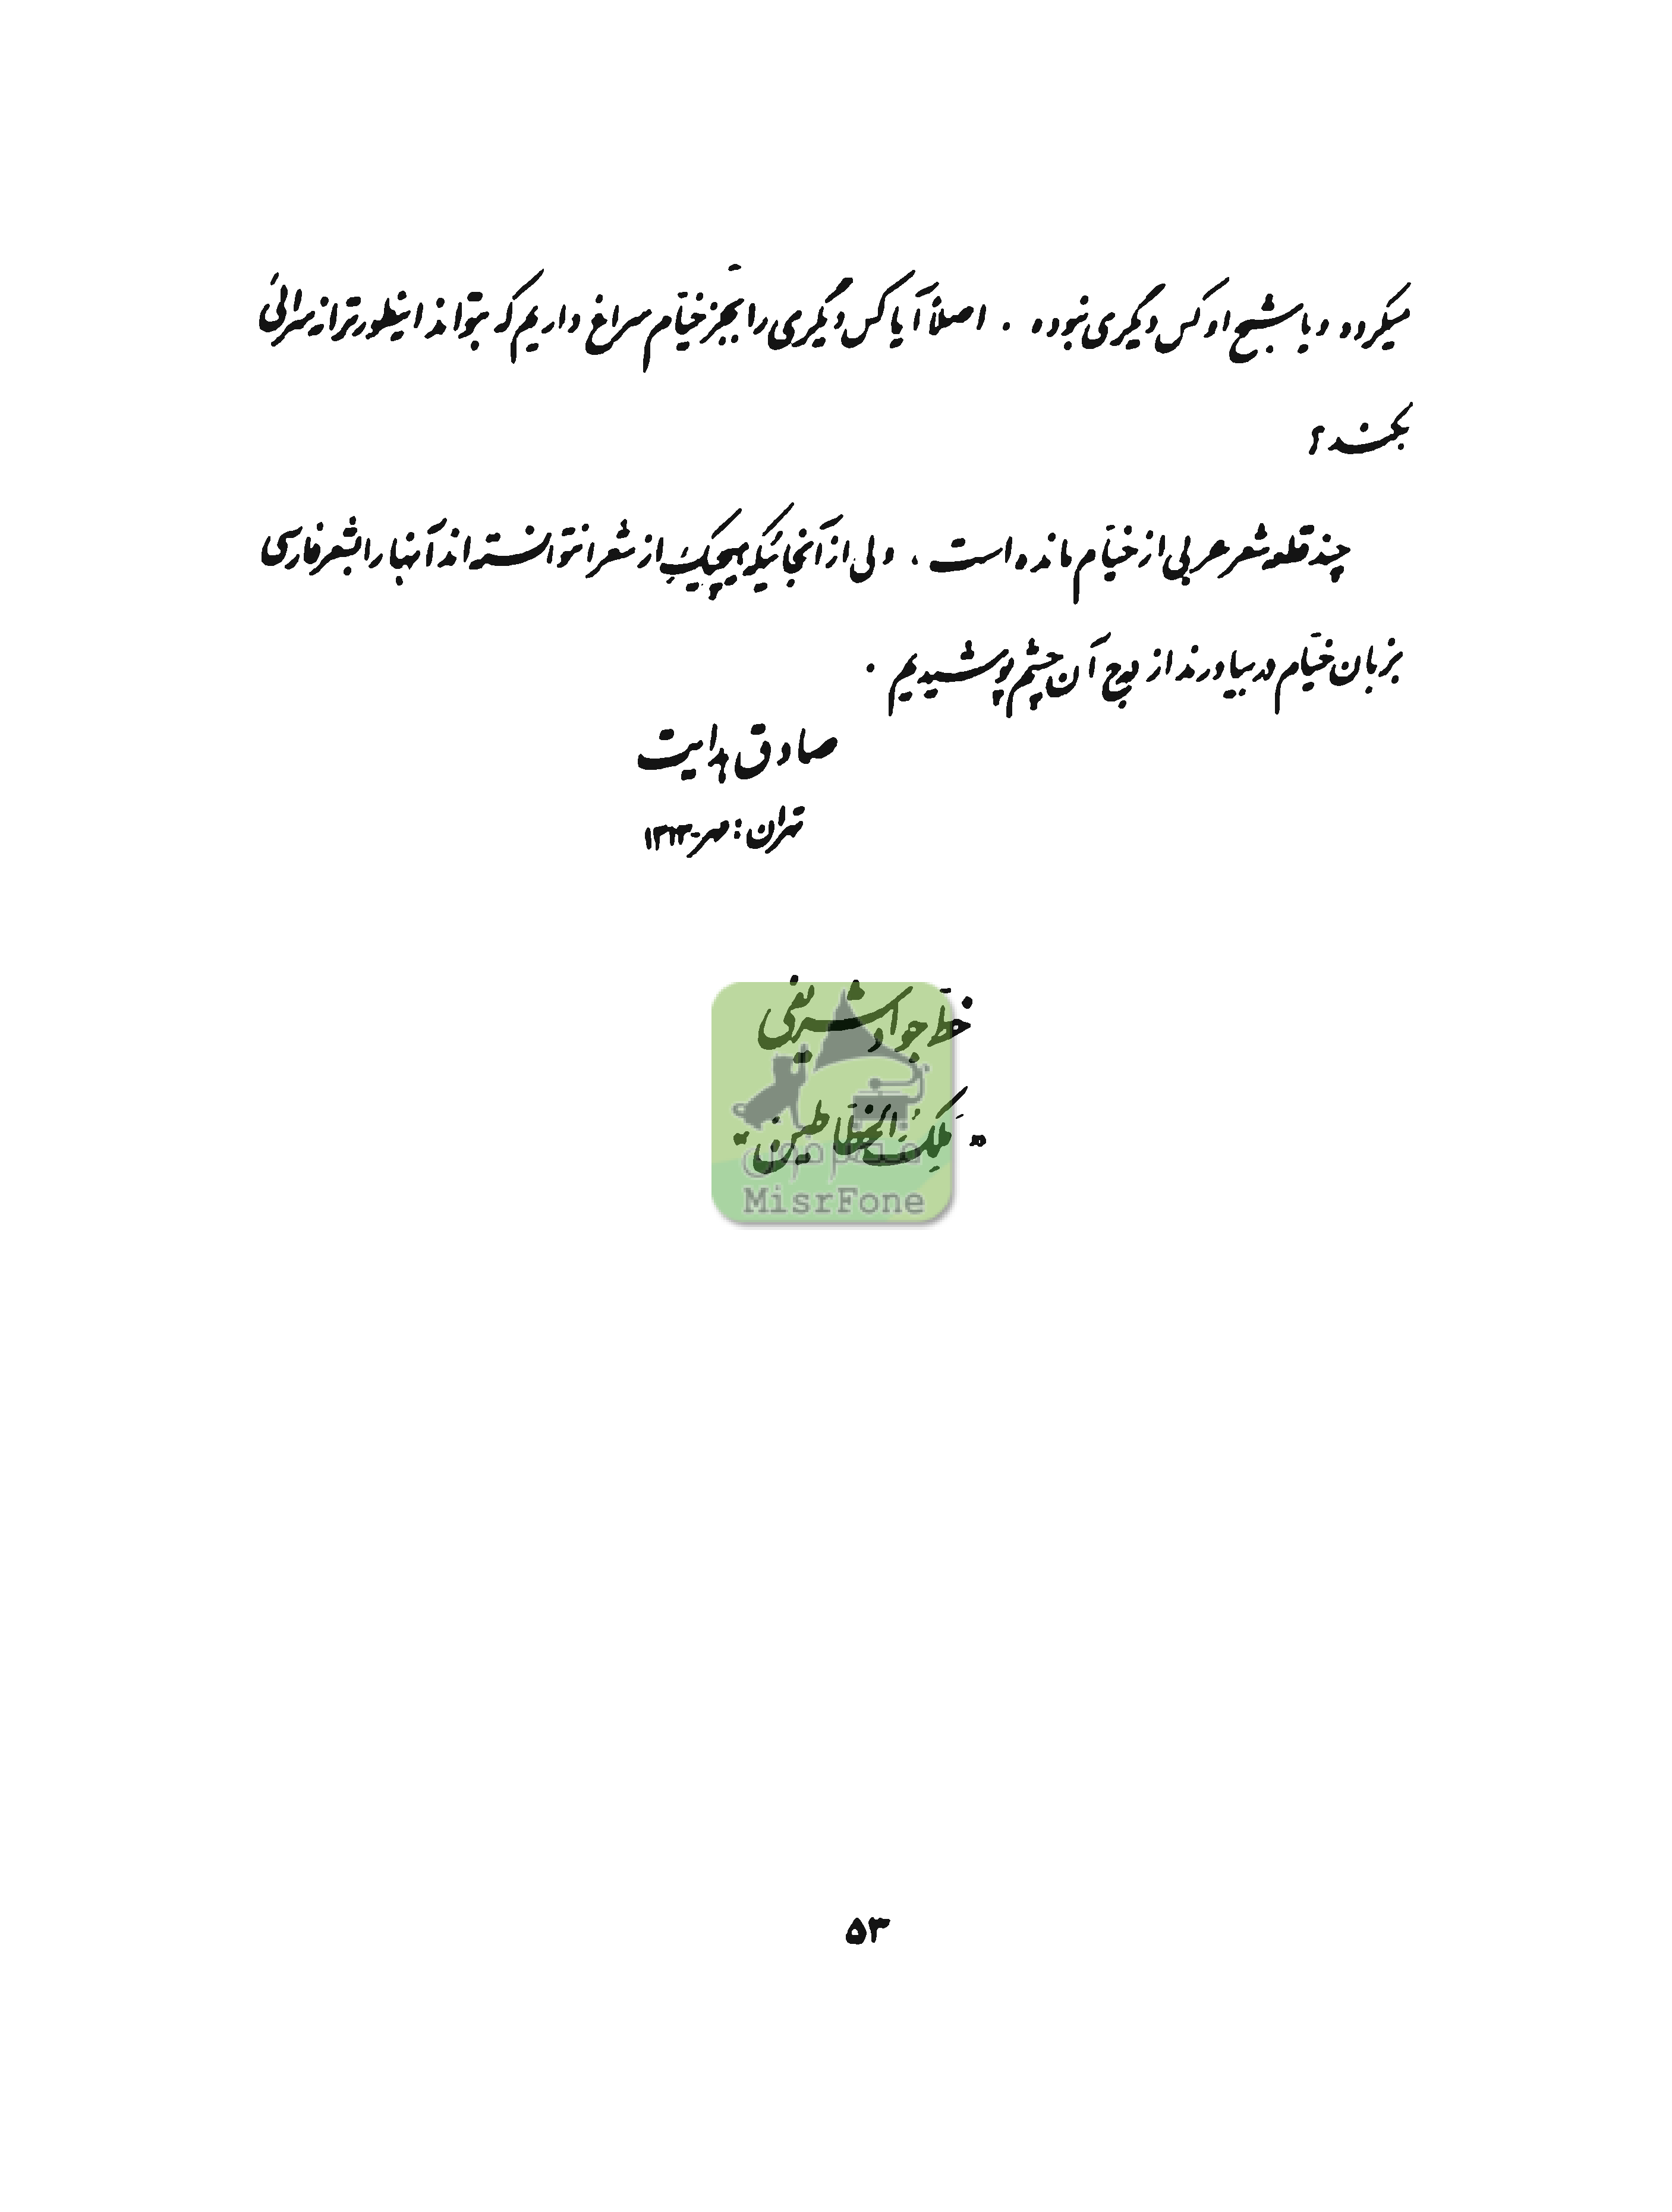 میکرده و یا بشبح او کس دیگری نبوده . اصلاً آیا کس دیگری را بجز خیّام سراغ داریم که بتواند اینطور ترانه‌سرائی
بکند ؟
چند قطعه شعر عربی از خیّام مانده است ، ولی از آنجائیکه هیچیک از شعرا نتوانسته‌اند آنها را بشعر فارسی
بزبان خیّام در بیاورند از درج آن چشم پوشیدیم .
صادق هدایت
تهران : مهر-۱۳۱۳
خطّ جواد شریفی
« مَلِکُ الخطّاطین »
مصرفون
MisrFone
۵۳